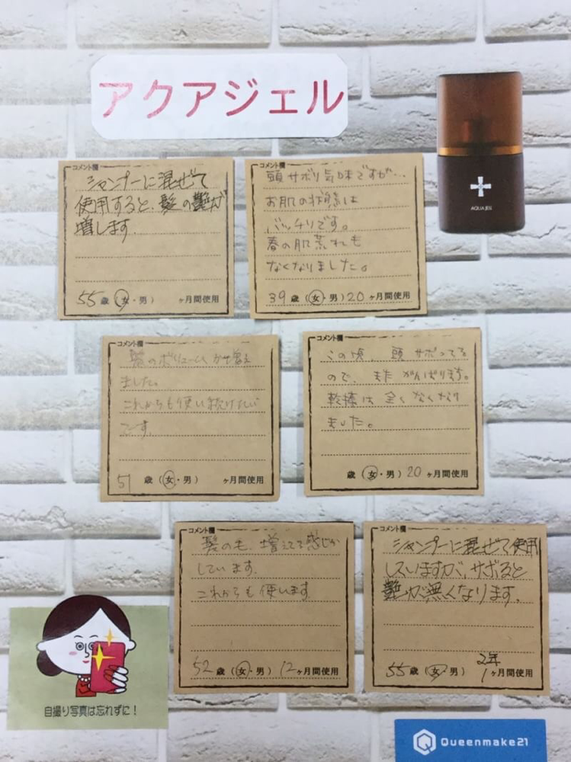 アクアジェル
AQUA JEG
コメント欄
シャンプーに混ぜて
使用すると、髪の艶が
増します
55歳(女・男) ヶ月間使用
コメント欄
頭サボり気味ですが…
お肌の調子は
バッチリです。
春の肌荒れも
なくなりました。
39歳(女・男)20ヶ月間使用
コメント欄
髪のボリュームが増え
ました。
これからも使い続けたい
です。
51歳(女・男) ヶ月間使用
コメント欄
この頃、頭サボってる
ので、またがんばります。
乾燥は全くなくなり
ました。
歳(女・男)20ヶ月間使用
コメント欄
髪の毛、増えてる感じが
しています。
これからも使います
52歳(女・男)12ヶ月間使用
コメント欄
シャンプーに混ぜて使用
していますが、サボると
艶が無くなります。
55歳(女・男)2年1ヶ月間使用
自撮り写真は忘れずに!
Queenmake21